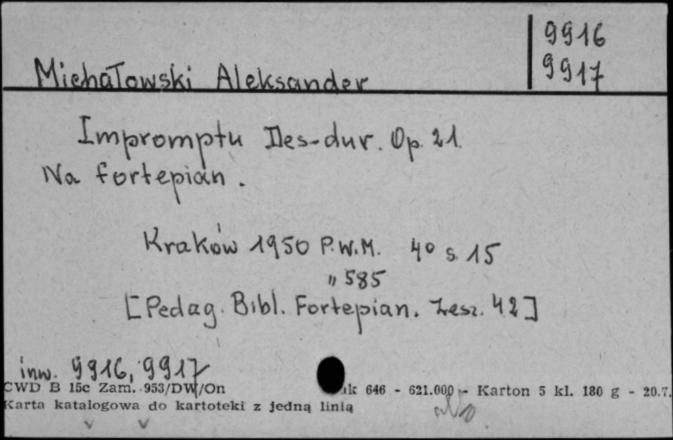 9916
9917
Michałowski Aleksander
Impromptu Des-dur. Op. 21.
Na fortepian.
Kraków 1950 P.W.M. 4° s. 15
" 585
[Pedag. Bibl. Fortepian. Zesz. 42]
inw. 9916, 9917
CWD B 15c Zam. 953/DW/On 646 - 621.000 - Karton 5 kl. 180 g - 20.7.
Karta katalogowa do kartoteki z jedną linią